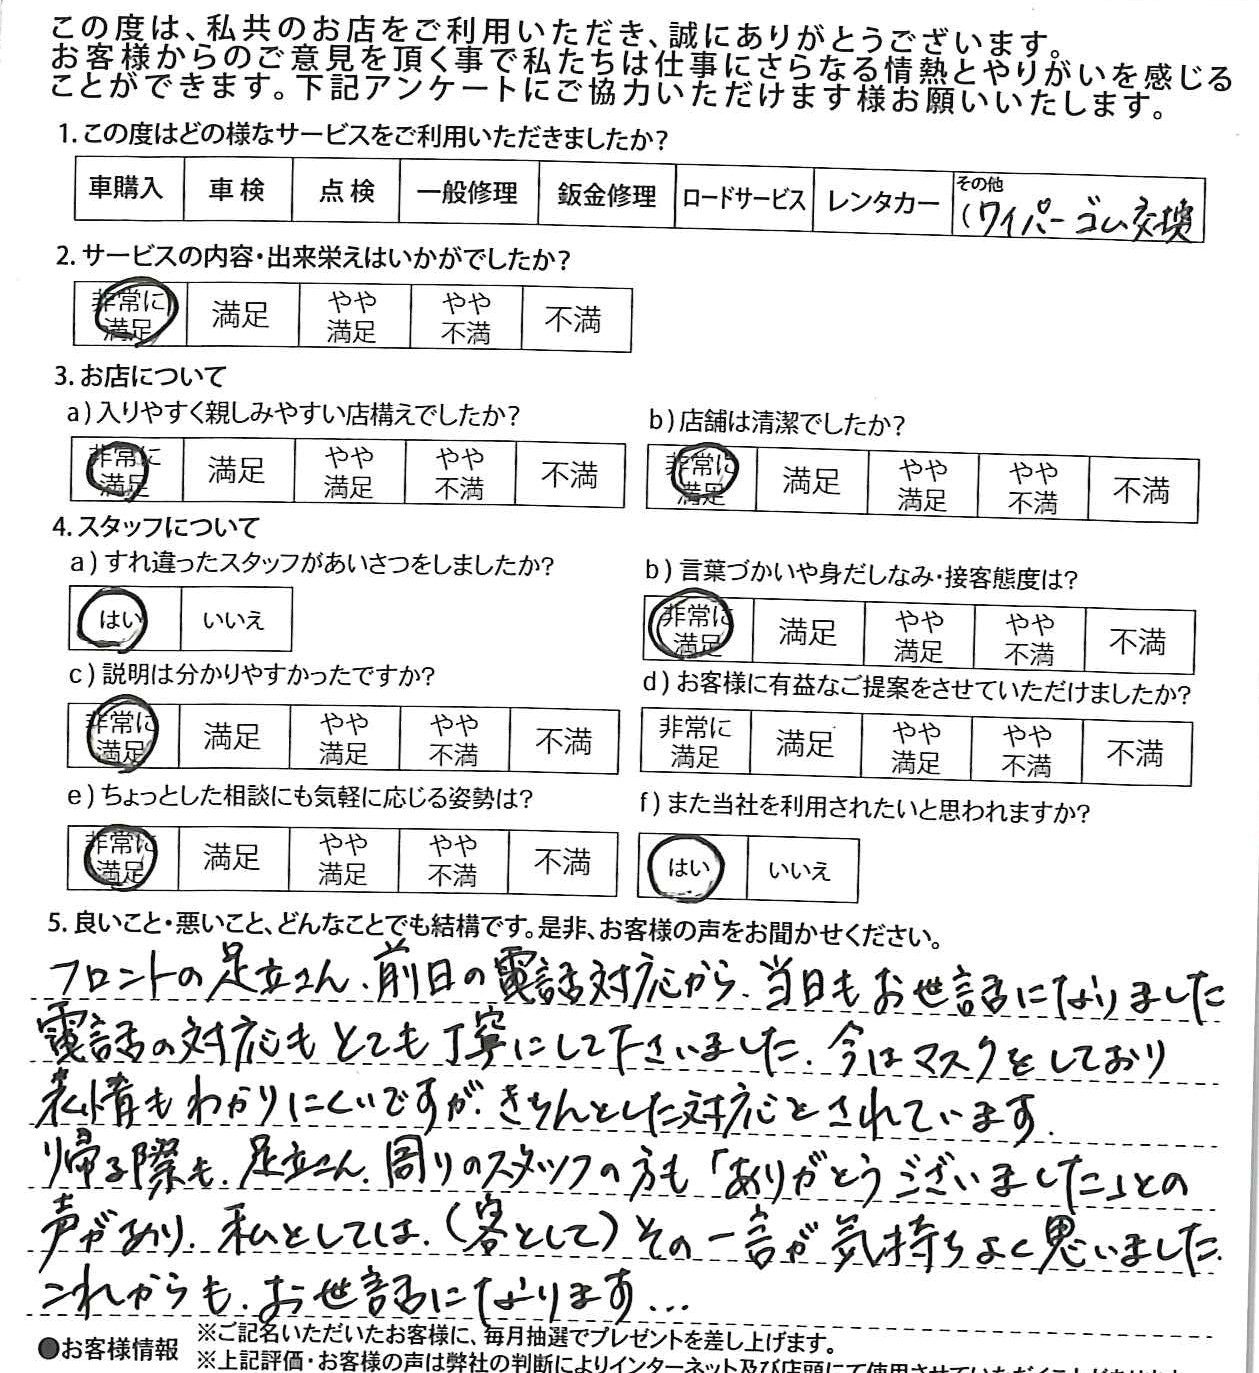 この度は、私共のお店をご利用いただき、誠にありがとうございます。
お客様からのご意見を頂く事で私たちは仕事にさらなる情熱とやりがいを感じる
ことができます。下記アンケートにご協力いただけます様お願いいたします。
1. この度はどの様なサービスをご利用いただきましたか?
車購入 車検 点検 一般修理 鈑金修理 ロードサービス レンタカー その他
(ワイパーゴム交換
2. サービスの内容・出来栄えはいかがでしたか?
非常に満足 満足 やや満足 やや不満 不満
3. お店について
a) 入りやすく親しみやすい店構えでしたか?
非常に満足 満足 やや満足 やや不満 不満
b) 店舗は清潔でしたか?
非常に満足 満足 やや満足 やや不満 不満
4. スタッフについて
a) すれ違ったスタッフがあいさつをしましたか?
はい いいえ
b) 言葉づかいや身だしなみ・接客態度は?
非常に満足 満足 やや満足 やや不満 不満
c) 説明は分かりやすかったですか?
非常に満足 満足 やや満足 やや不満 不満
d) お客様に有益なご提案をさせていただけましたか?
非常に満足 満足 やや満足 やや不満 不満
e) ちょっとした相談にも気軽に応じる姿勢は?
非常に満足 満足 やや満足 やや不満 不満
f) また当社を利用されたいと思われますか?
はい いいえ
5. 良いこと・悪いこと、どんなことでも結構です。是非、お客様の声をお聞かせください。
フロントの足立さん、前日の電話対応から、当日もお世話になりました
電話の対応もとても丁寧にして下さいました。今はマスクをしており
表情もわかりにくいですが、きちんとした対応をされています。
帰る際も、足立さん、周りのスタッフの方も「ありがとうございました」との
声があり、私としては、(客として)その一言が気持ちよく思いました。
これからも、お世話になります...
●お客様情報 ※ご記名いただいたお客様に、毎月抽選でプレゼントを差し上げます。
※上記評価・お客様の声は弊社の判断によりインターネット及び店頭にて使用させていただくことがあります